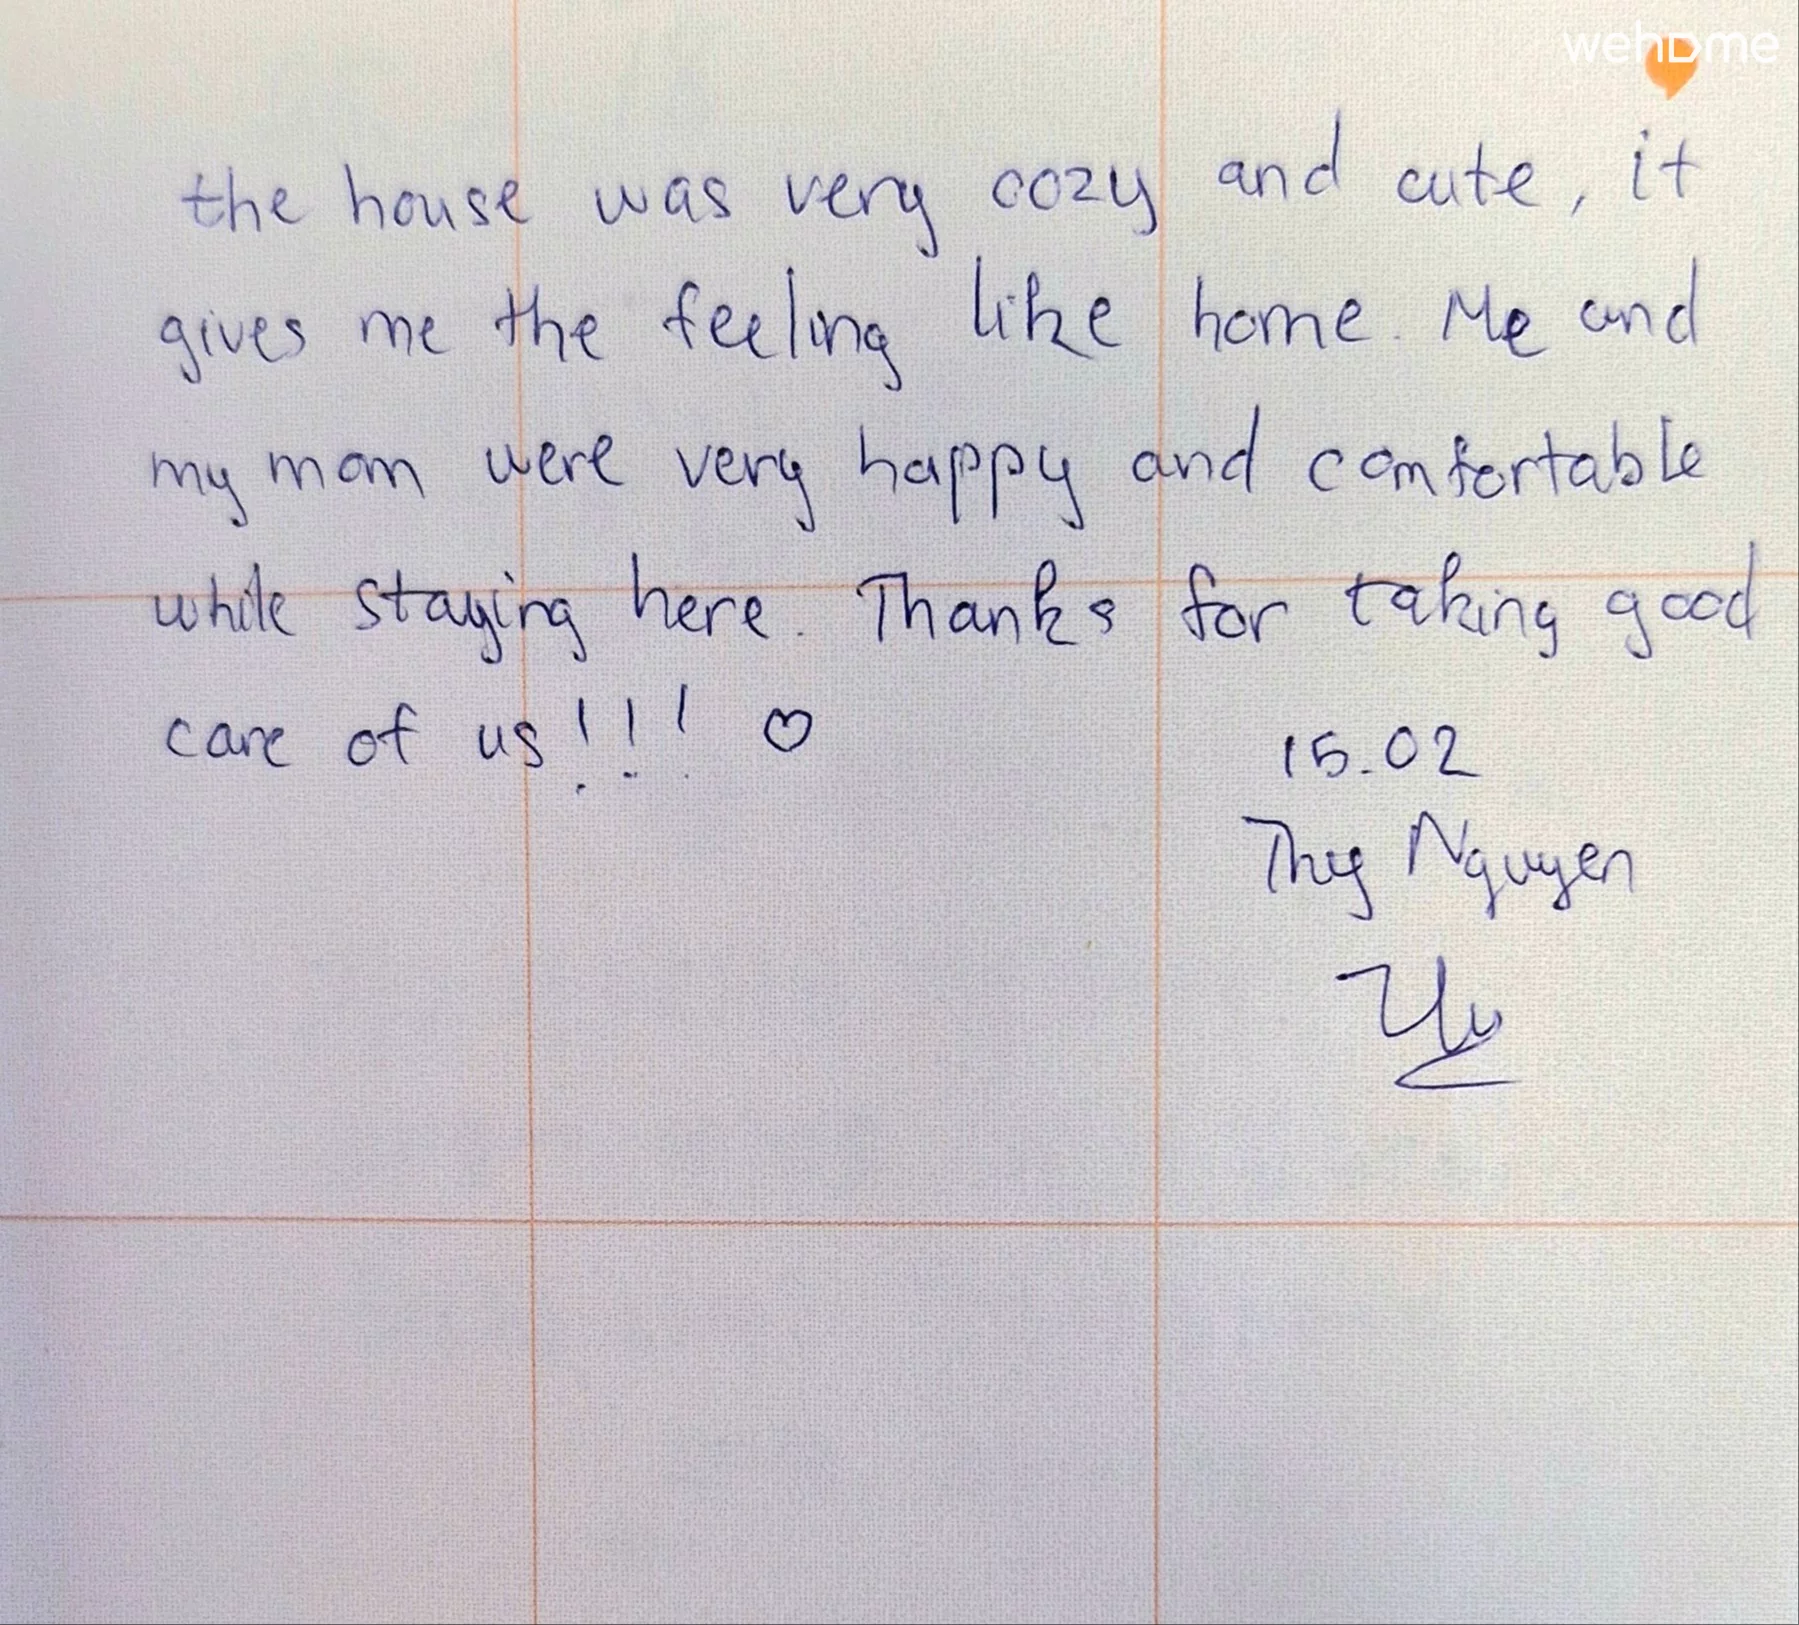 wehome
the house was very cozy and cute, it
gives me the feeling like home. Me and
my mom were very happy and comfortable
while staying here. Thanks for taking good
care of us!!! ♡
15.02
Thy Nguyen